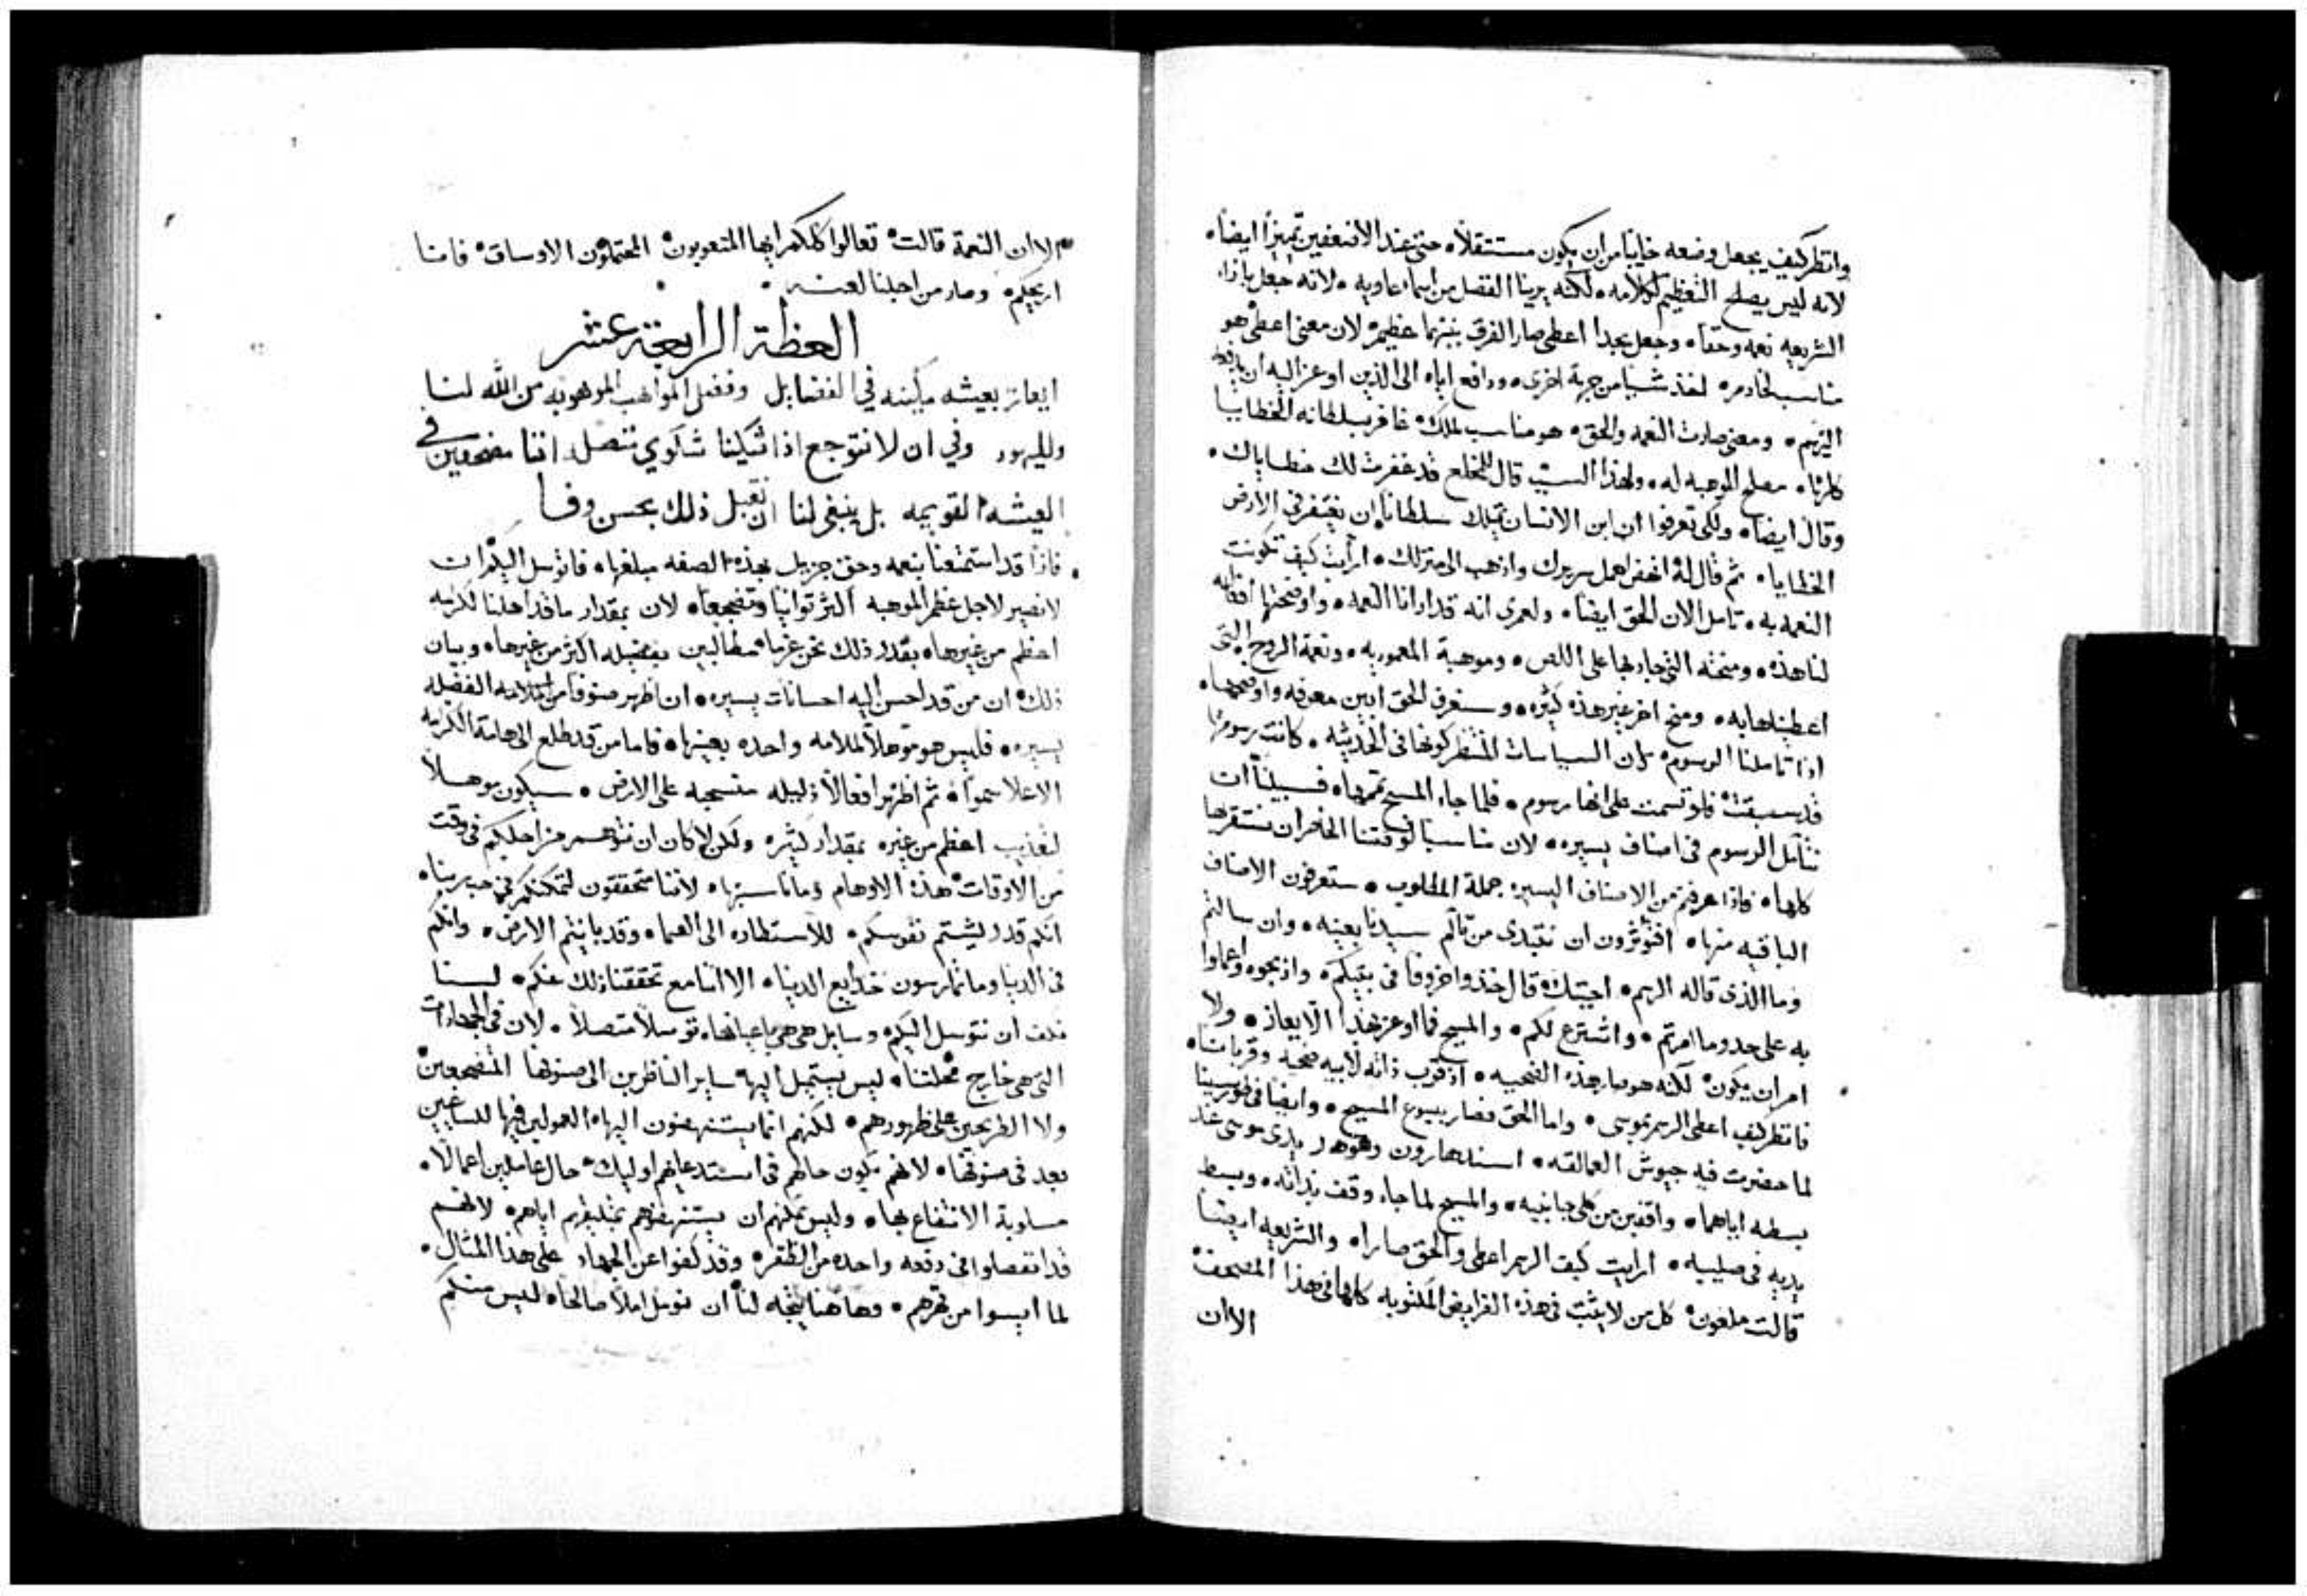 وانظر كيف يجعل وضعه خايبا من ان يكون مستثقلا، حتى عند الاضعفين تميزا ايضا،
لانه ليس يصلح التعظيم لكلامه، لكنه يرينا الفضل من اسماء عاديه، لانه جعل بازاء
الشريعه نعمه وحقا، وجعل بحذا اعطى صار الفرق بينهما عظيم، لان معنى اعطى هو
مناسب لخادم، اخذ شيا من جهة اخرى، ودافع اياه الى الذين اوعز اليه ان يدفعه
اليهم، ومعنى صارت النعمه والحق، هو مناسب لملك، غافر بسلطانه الخطايا
كلها، مصلح الموهبه له، ولهذا السبب قال للمخلع قد غفرت لك خطاياك،
وقال ايضا، ولكي تعرفوا ان ابن الانسان يمتلك سلطانا ان يغفر في الارض
الخطايا، ثم قال له انهض احمل سريرك واذهب الى منزلك، ارايت كيف تكونت
النعمه به، تامل الان الحق ايضا، ولعمري انه قد ارانا النعمه، واوضحتها افعاله
لنا هذه، ومنحته التي جاد بها على اللص، وموهبة المعموديه، ونعمة الروح التي
اعطيناها به، ومنح اخر غير هذه كثيره، وسنعرف الحق ابين معرفه واوضحها،
اذا تاملنا الرسوم، لان السياسات المنتظر كونها في الحديثه، كانت رسومها
قد سبقت فارتسمت على انها رسوم، فلما جاء المسيح تممها، فسبيلنا ان
نتامل الرسوم في اصناف يسيره، لان مناسبا لوقتنا الحاضر ان نستقريها
كلها، فاذا عرفتم من الاصناف اليسيره جملة المطلوب، ستعرفون الاصناف
الباقيه منها، افتوثرون ان نبتدي من تالم سيدنا بعينه، وان سالتم
وما الذي قاله الرسم، اجبتك قال خذوا خروفا في بيتكم، واذبحوه واعملوا
به على حد وما امرتم، واشترع لكم، والمسيح فما اوعز بهذا الايعاز، ولا
امر ان يكون، لكنه هو صار هذه الضحيه، اذ قرب ذاته لابيه ضحيه وقربانا،
فانظر كيف اعطى الرسم بموسى، واما الحق فصار بيسوع المسيح، وايضا في طور سينا
لما حضرت فيه جيوش العمالقه، اسند هارون وهور يدي موسى عند
بسطه اياهما، واقفين من كلي جانبيه، والمسيح لما جاء وقف بذاته، وبسط
يديه في صليبه، ارايت كيف الرسم اعطى والحق صار، والشريعه اريتنا
قالت ملعون، كل من لا يثبت في هذه الفرايض المكتوبه كلها في هذا المصحف
الا ان
الا ان النعمة قالت، تعالوا كلكم ايها المتعوبون، المحتملون الاوساق، فانا
اريحكم، وصار من اجلنا لعنه،
العظة الرابعة عشر
ايعاز بعيشه مكينه في الفضايل وفضل المواهب الموهوبه من الله لنا
ولليهود وفي ان لا نتوجع اذا شكينا شكوي تتصل اننا مضجعين في
العيشه القويمه بل ينبغي لنا ان نقبل ذلك بحسن وفا
فاذا قد استمتعنا بنعمه وحق جزيل بهذه الصفه مبلغها، فاتوسل اليكم ان
لا نصير لاجل عظم الموهبه اكثر توانيا وتضجعا، لان بمقدار ما قد اهلنا لكرامه
اعظم من غيرها، بقدر ذلك نحن غرما، مطالبين بفضيله اكثر من غيرها، وبيان
ذلك، ان من قد احسن اليه احسانات يسيره، ان اظهر صنوفا من الفضيله
يسيره، فليس هو موهلا لملامه واحده بعينها، فاما من قد طلع الى هامة الكرامه
الاعلا سموا، ثم اظهر افعالا ذليله منسحبه على الارض، سيكون موهلا
لتعذيب اعظم من غيره بمقدار كثير، ولكن لا كان ان نتوهم من اجلكم في وقت
من الاوقات، هذه الاوهام وما ناسبها، لاننا متحققون لتمكنكم في حب ربنا،
انكم قد ريشتم نفوسكم، للاستطاره الى السما، وقد باينتم الارض، وانكم
في الدنيا وما تمارسون خدايع الدنيا، الا اننا مع تحققنا ذلك عنكم، لسنا
نكف ان نتوسل اليكم، وسايل هي هي باعيانها، توسلا متصلا، لان في الجهادات
التي هي خارج محلتنا، ليس يستميل اليها ساير الناظرين الى صنوفها المضجعين
ولا الطريحين على ظهورهم، لكنهم انما يستنهضون اليها، العمولين فيها الساعيين
بعد في صنوفها، لانهم يكون حالهم في استدعايهم اوليك، حال عاملين اعمالا،
مساوية الانتفاع بها، وليس يمكنهم ان يستنهضوهم بتثقيفهم اياهم، لانهم
قد انفصلوا في دفعه واحده من الظفر، وقد كفوا عن الجهاد على هذا المثال،
لما ايسوا من قهرهم، فهاهنا يتجه لنا، ان نومل املا صالحا، ليس منكم